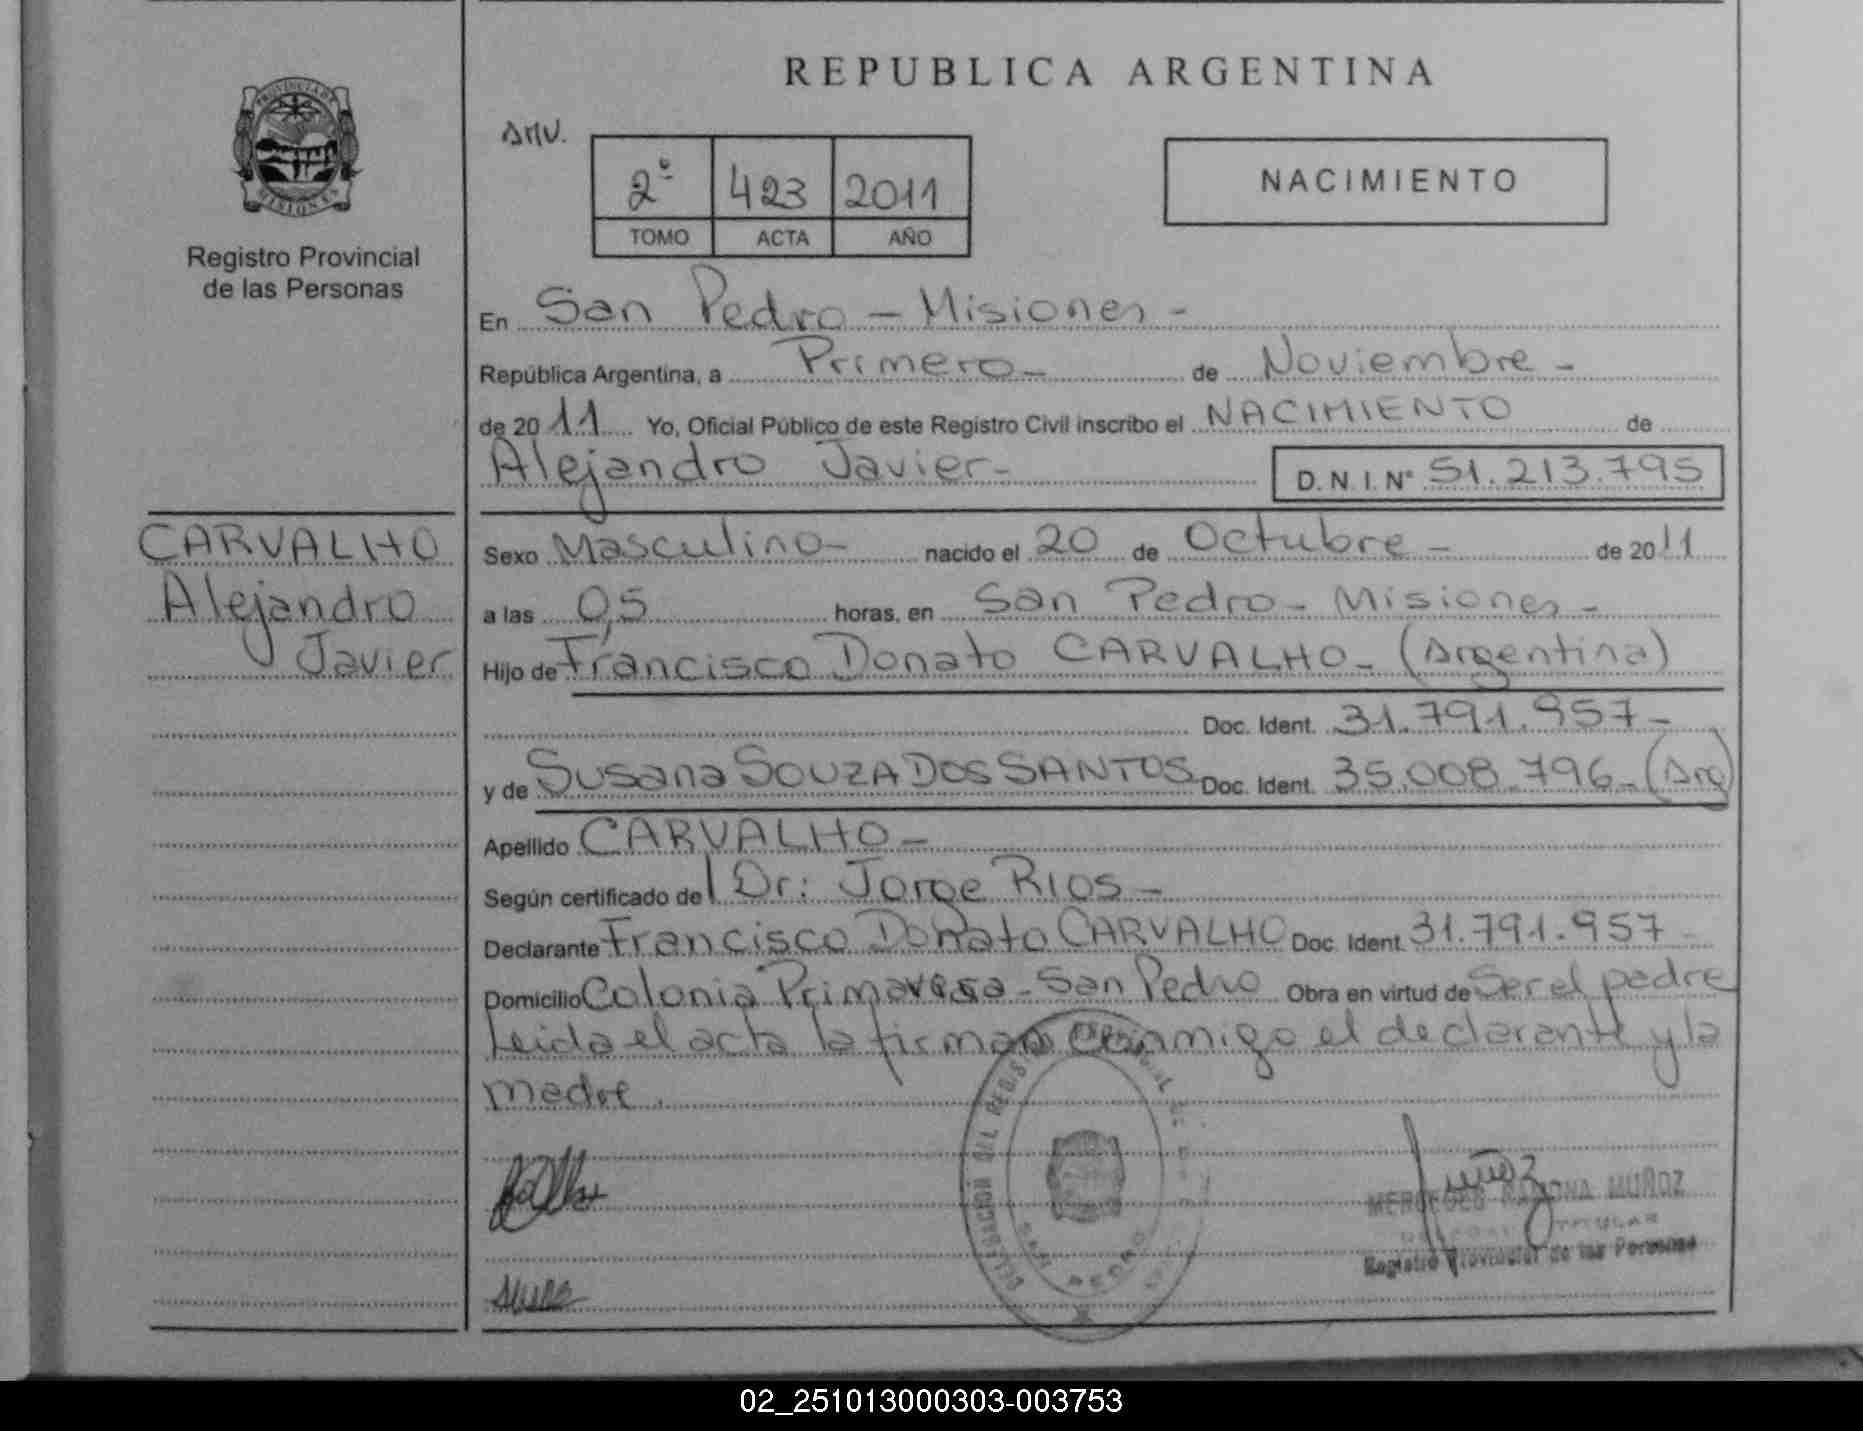 REPUBLICA ARGENTINA
PROVINCIA DE
MISIONES
Registro Provincial
de las Personas
AMV.
2º 423 2011
TOMO ACTA AÑO
NACIMIENTO
En San Pedro - Misiones -
República Argentina, a Primero - de Noviembre -
de 2011 Yo, Oficial Público de este Registro Civil inscribo el NACIMIENTO de
Alejandro Javier - D.N.I.Nº 51.213.795
CARVALHO
Alejandro
Javier
Sexo Masculino - nacido el 20 de Octubre - de 2011
a las 0,5 horas, en San Pedro - Misiones -
Hijo de Francisco Donato CARVALHO - (Argentina)
Doc. Ident. 31.791.957 -
y de Susana SOUZA DOS SANTOS Doc. Ident. 35.008.796 - (Arg)
Apellido CARVALHO -
Según certificado del Dr: Jorge RIOS -
Declarante Francisco Donato CARVALHO Doc. Ident. 31.791.957 -
Domicilio Colonia Primavera - San Pedro Obra en virtud de Ser el padre
Leida el acta la firman conmigo el declarante y la
madre.
DELEGACION DEL REGISTRO
SAN PEDRO
MERCEDES RAMONA MUÑOZ
TITULAR
Registro Provincial de las Personas
02_251013000303-003753